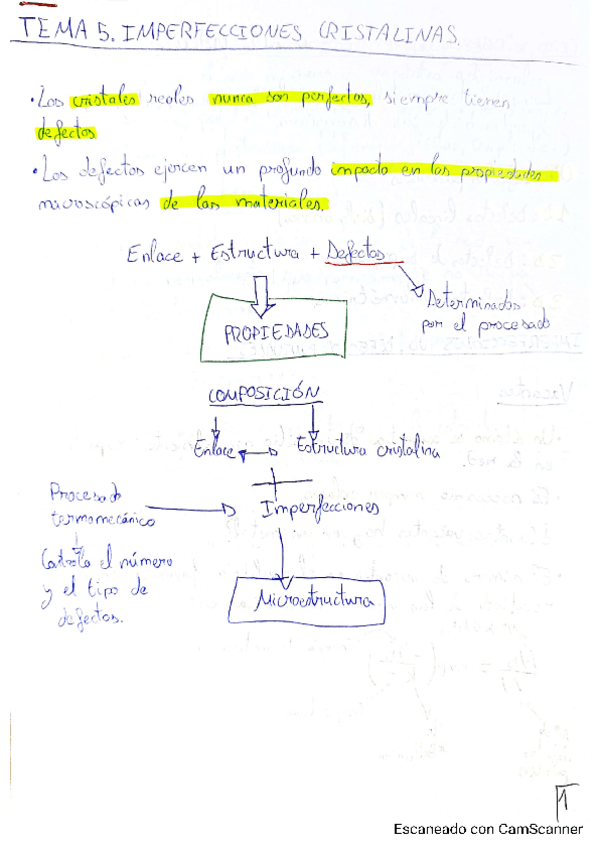 TEMA 5. IMPERFECCIONES CRISTALINAS.
· Los cristales reales nunca son perfectos, siempre tienen
defectos
· Los defectos ejercen un profundo impacto en las propiedades
macroscópicas de los materiales.
Enlace + Estructura + Defectos
Determinados
por el procesado
PROPIEDADES
COMPOSICIÓN
Enlace
Estructura cristalina
+
Procesado
termomecánico
Imperfecciones
Controla el número
y el tipo de
defectos.
Microestructura
1
Escaneado con CamScanner